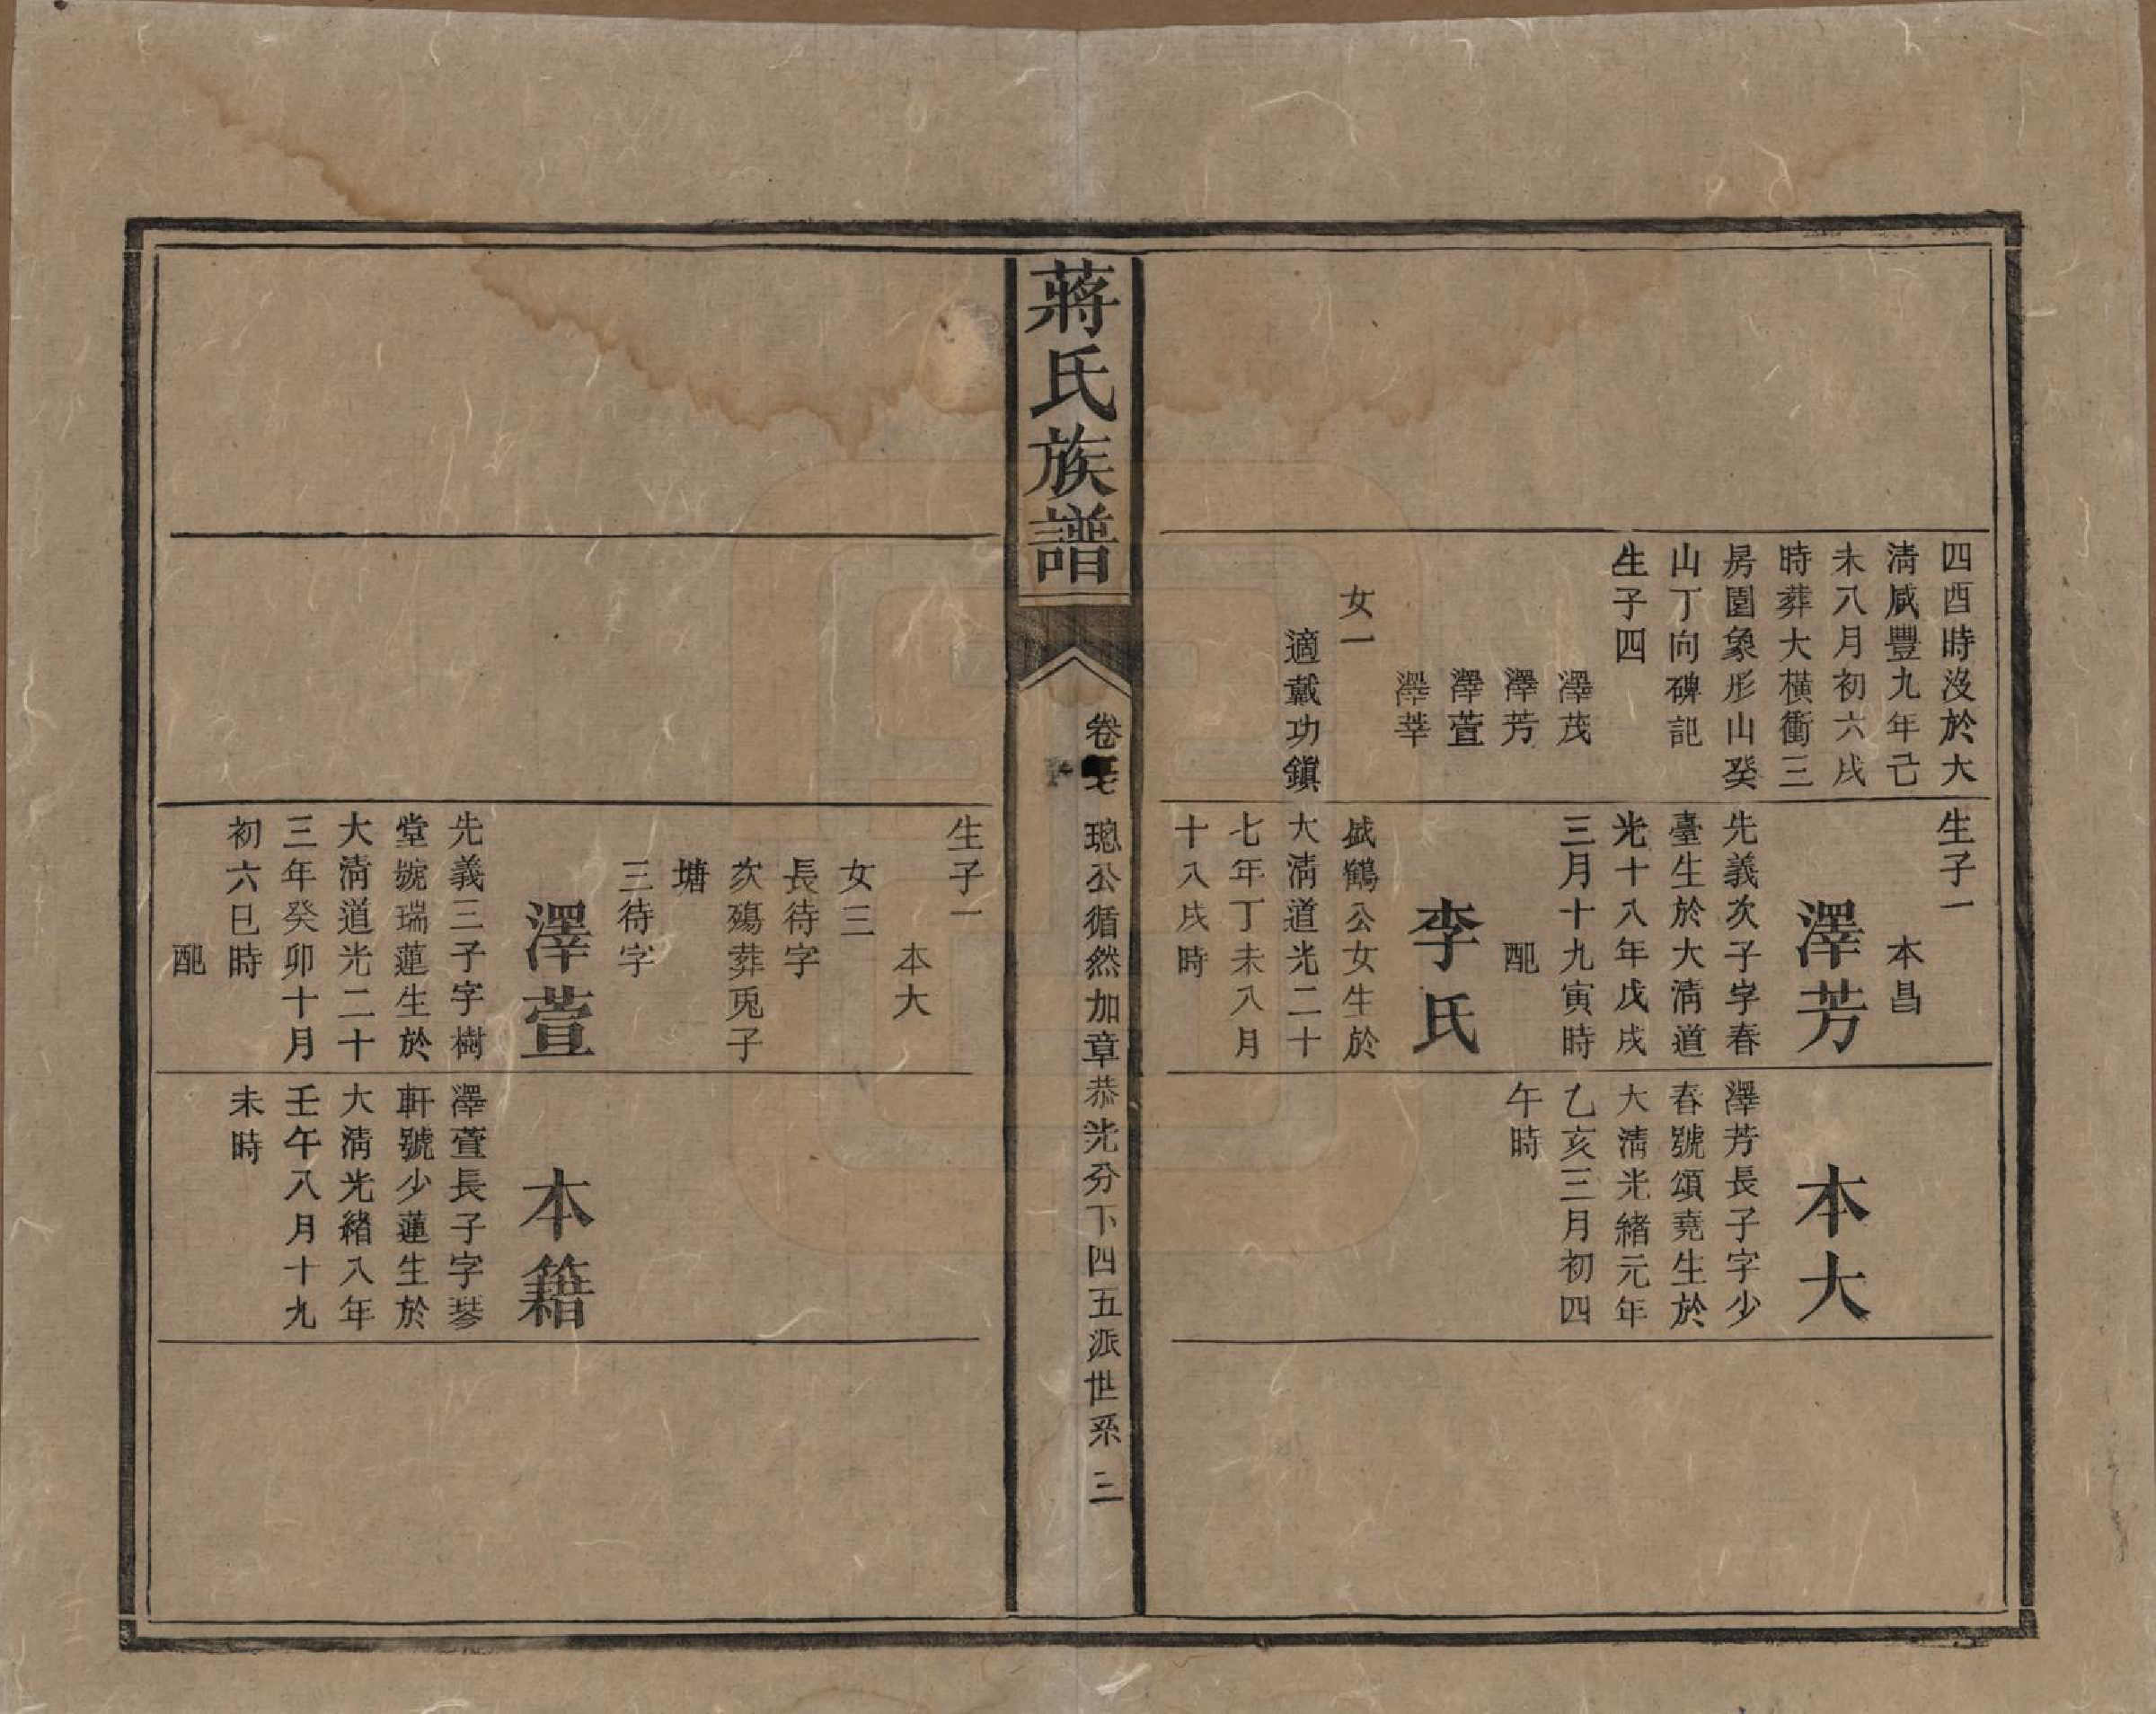 四酉時沒於大
淸咸豐九年己
未八月初六戌
時葬大橫衝三
房園象形山癸
山丁向碑記
生子四
澤茂
澤芳
澤萱
澤莘
女一
適戴功鎭
生子一
本昌
澤芳
先義次子字春
臺生於大淸道
光十八年戊戌
三月十九寅時
配
李氏
鶴公女生於
大淸道光二十
七年丁未八月
十八戌時
本大
澤芳長子字少
春號頌堯生於
大淸光緒元年
乙亥三月初四
午時
蔣氏族譜
卷
璁公循然加章恭光分下四五派世系 三
生子一
本大
女三
長待字
次殤葬兎子
塘
三待字
澤萱
先義三子字樹
堂號瑞蓮生於
大淸道光二十
三年癸卯十月
初六巳時
配
本籍
澤萱長子字琴
軒號少蓮生於
大淸光緒八年
壬午八月十九
未時